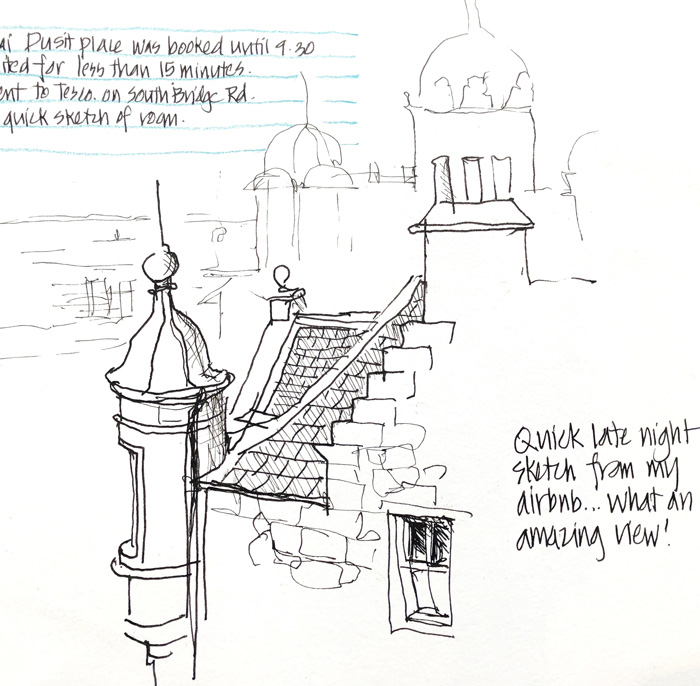 ai Dusit place was booked until 9.30
ited for less than 15 minutes.
ent to Tesco. on South Bridge Rd.
quick sketch of room.
Quick late night
sketch from my
airbnb... what an
amazing view!